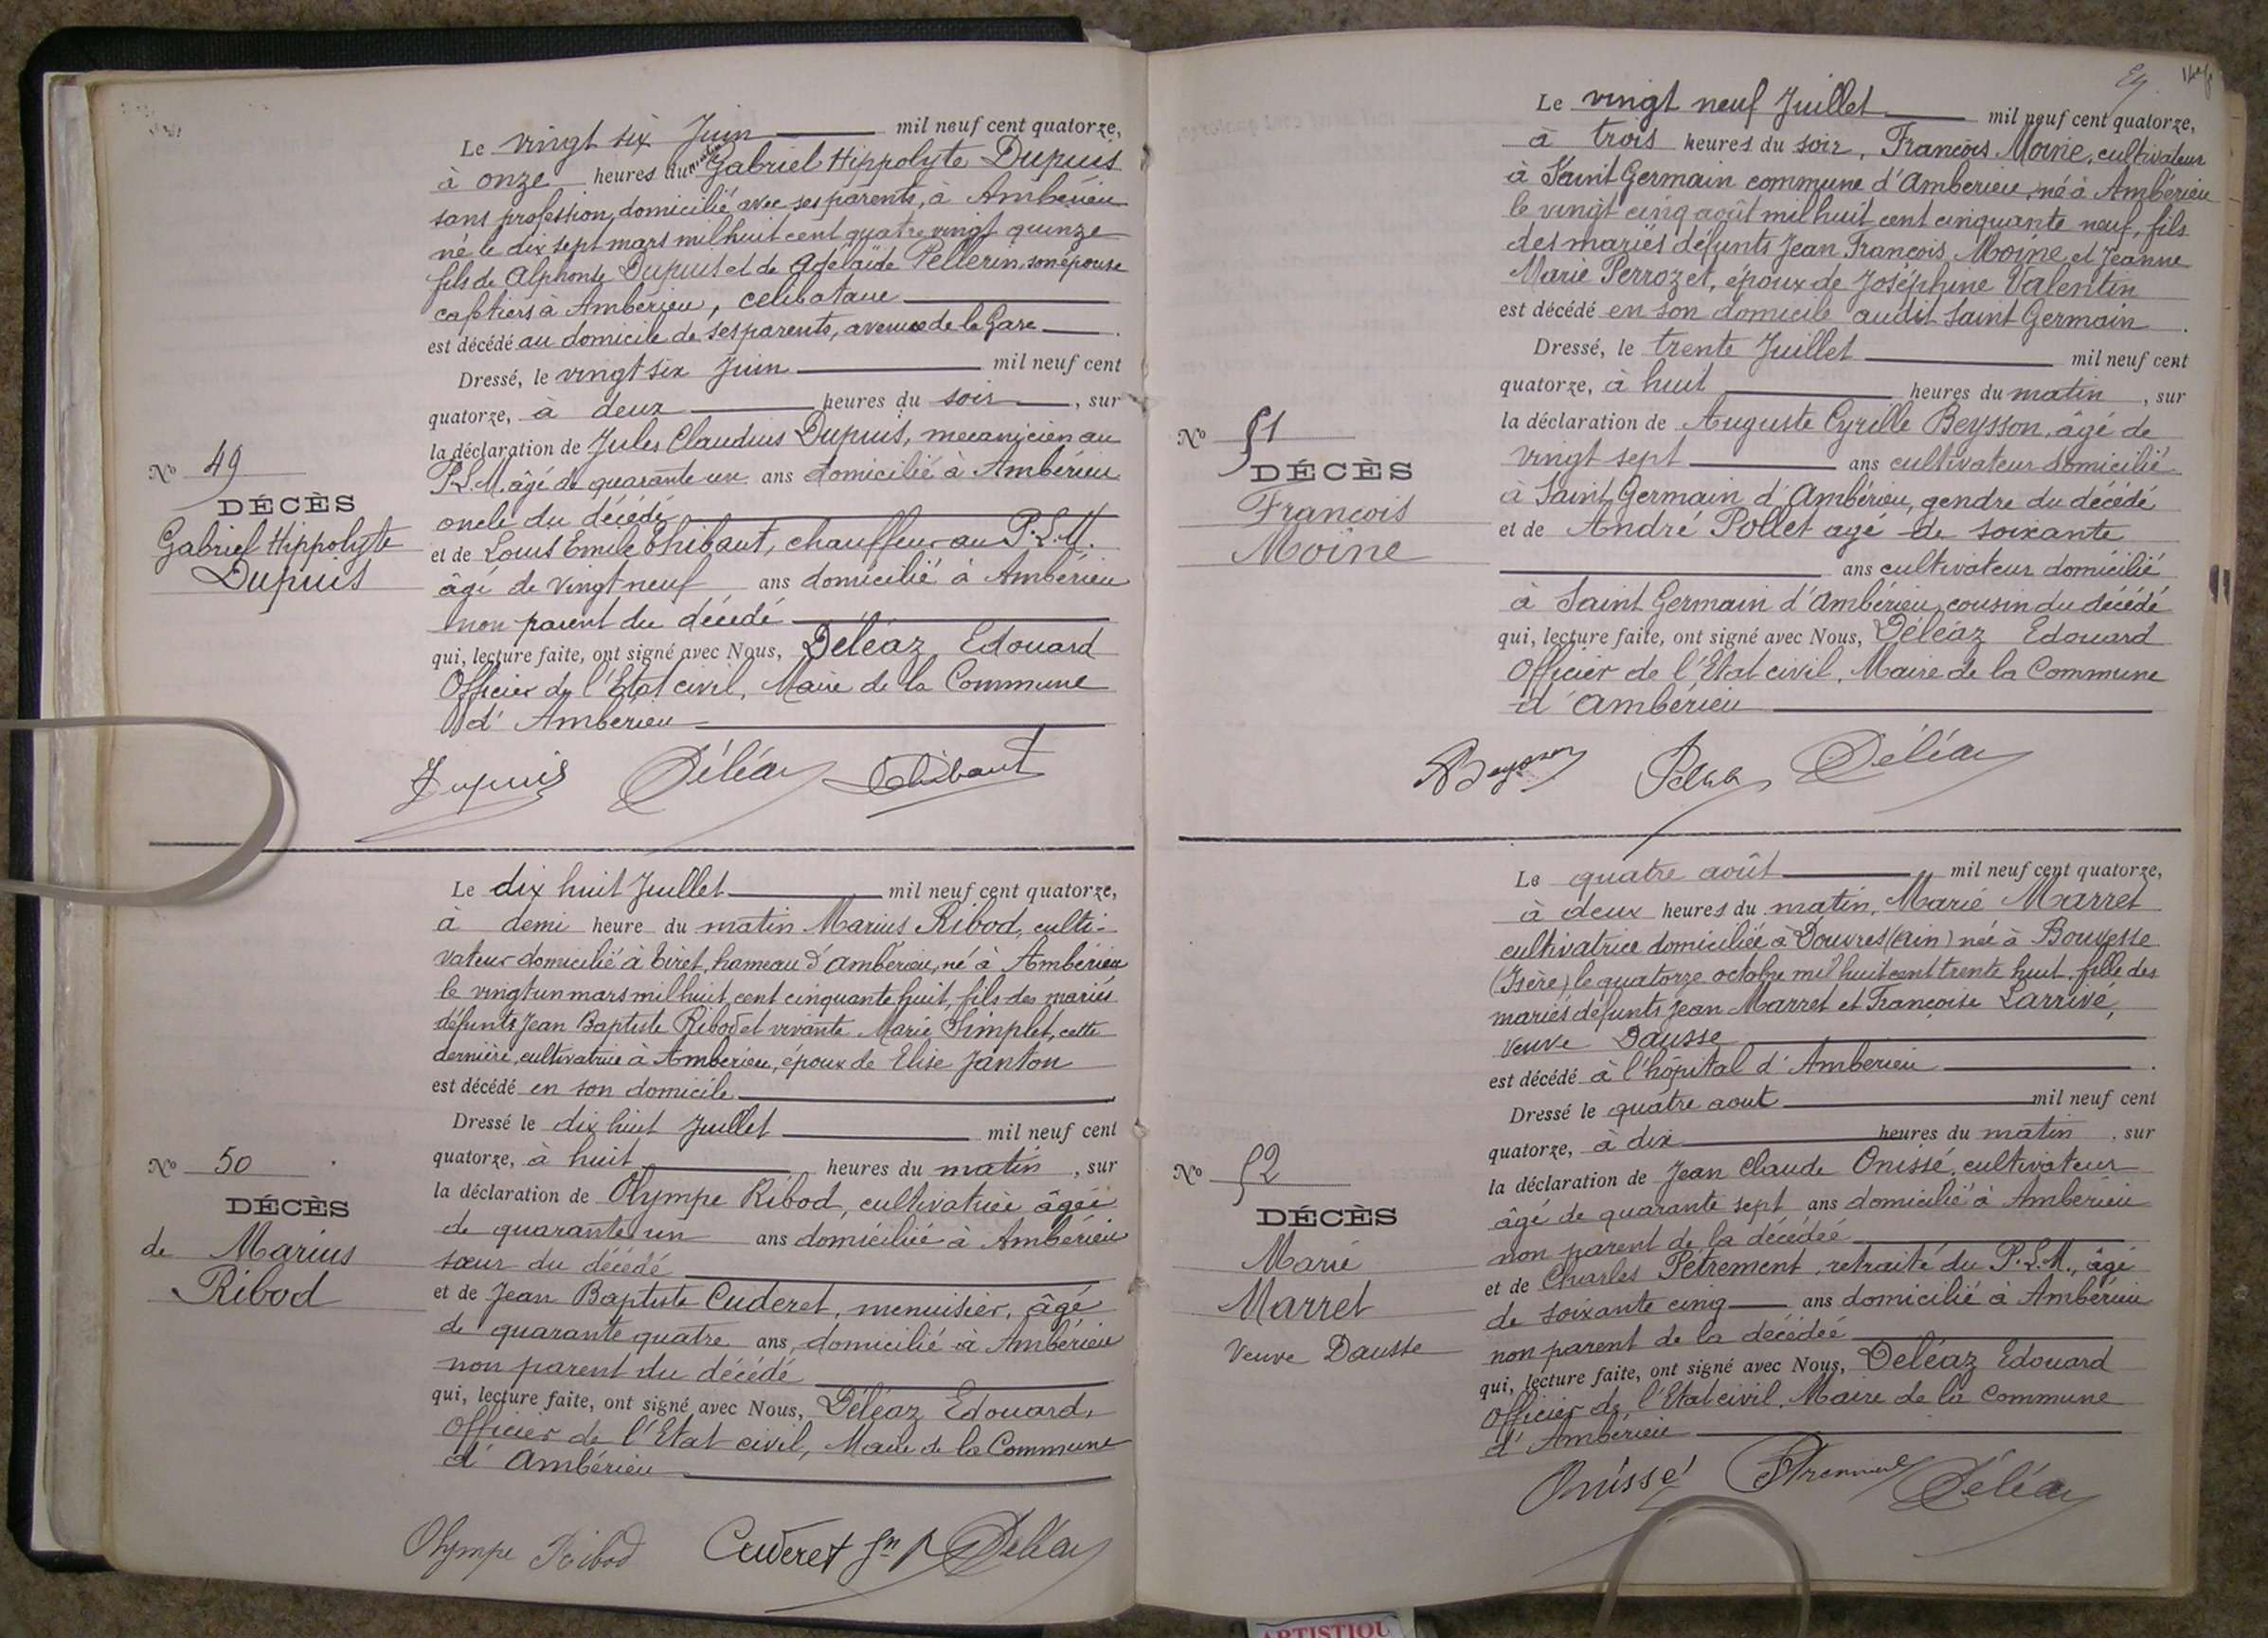 Le vingt six Juin mil neuf cent quatorze,
à onze heures du matin Gabriel Hippolyte Dupuis
sans profession, domicilié avec ses parents, à Ambérieu
né le dix sept mars mil huit cent quatre vingt quinze
fils de Alphonse Dupuis et de Adélaïde Pellerin, son épouse
cafetiers à Ambérieu, célibataire
est décédé au domicile de ses parents, avenue de la Gare.
Dressé, le vingt six Juin mil neuf cent
quatorze, à deux heures du soir, sur
la déclaration de Jules Claudius Dupuis, mecanicien au
P.L.M. âgé de quarante un ans domicilié à Ambérieu
oncle du décédé
et de Louis Emile Thibaut, chauffeur au P.L.M.
âgé de vingt neuf ans domicilié à Ambérieu
non parent du décédé
qui, lecture faite, ont signé avec Nous, Déléaz Edouard
Officier de l'Etat civil, Maire de la Commune
d'Ambérieu
Dupuis Déléaz Thibaut
No 49
DÉCÈS
Gabriel Hippolyte
Dupuis
Le dix huit Juillet mil neuf cent quatorze,
à demi heure du matin Marius Ribod, culti-
vateur domicilié à Tiret, hameau d'Ambérieu, né à Ambérieu
le vingt un mars mil huit cent cinquante huit, fils des mariés
défunts Jean Baptiste Ribod et vivante Marie Simplet, cette
dernière, cultivatrice à Ambérieu, époux de Elise Janton
est décédé en son domicile
Dressé le dix huit Juillet mil neuf cent
quatorze, à huit heures du matin, sur
la déclaration de Olympe Ribod, cultivatrice âgée
de quarante un ans domiciliée à Ambérieu
sœur du décédé
et de Jean Baptiste Cuderet, menuisier, âgé
de quarante quatre ans, domicilié à Ambérieu
non parent du décédé
qui, lecture faite, ont signé avec Nous, Déléaz Edouard,
Officier de l'Etat civil, Maire de la Commune
d'Ambérieu
Olympe Ribod Cuderet Jn Déléaz
No 50
DÉCÈS
de Marius
Ribod
Le vingt neuf Juillet mil neuf cent quatorze,
à trois heures du soir, François Moine, cultivateur
à Saint Germain commune d'Amberieu, né à Ambérieu
le vingt cinq août mil huit cent cinquante neuf, fils
des mariés défunts Jean François Moine et Jeanne
Marie Perrozet, époux de Joséphine Valentin
est décédé en son domicile audit Saint Germain.
Dressé, le trente Juillet mil neuf cent
quatorze, à huit heures du matin, sur
la déclaration de Auguste Cyrille Beysson, âgé de
vingt sept ans cultivateur domicilié
à Saint Germain d'Ambérieu, gendre du décédé
et de André Pollet agé de soixante
ans cultivateur domicilié
à Saint Germain d'Ambérieu, cousin du décédé
qui, lecture faite, ont signé avec Nous, Déléaz Edouard
Officier de l'Etat civil, Maire de la Commune
d'Ambérieu
Beysson Déléaz
No 51
DÉCÈS
François
Moine
Le quatre août mil neuf cent quatorze,
à deux heures du matin, Marie Marret
cultivatrice domiciliée à Douvres (Ain) née à Bouvesse
(Isère) le quatorze octobre mil huit cent trente huit, fille des
mariés défunts Jean Marret et Françoise Larrivé,
veuve Dausse
est décédé à l'hôpital d'Amberieu.
Dressé le quatre aout mil neuf cent
quatorze, à dix heures du matin, sur
la déclaration de Jean Claude Onissé, cultivateur
âgé de quarante sept ans domicilié à Ambérieu
non parent de la décédée
et de Charles Pétrement, retraité du P.L.M., âgé
de soixante cinq ans domicilié à Ambérieu
non parent de la décédée
qui, lecture faite, ont signé avec Nous, Deléaz Edouard
Officier de l'Etat civil, Maire de la Commune
d'Ambérieu
Onissé Pétrement Déléaz
No 52
DÉCÈS
Marie
Marret
Veuve Dausse
ARTISTIQU